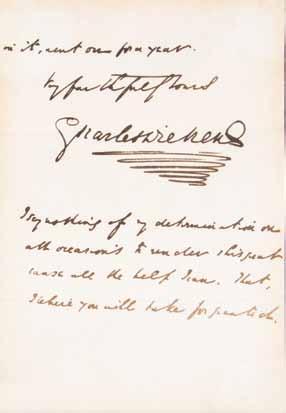 in it, next on for a year.
Ever faithfully Yours
Charles Dickens
I say nothing of my determination on
all occasions to render this great
cause all the help I can. That,
I believe you will take for granted.